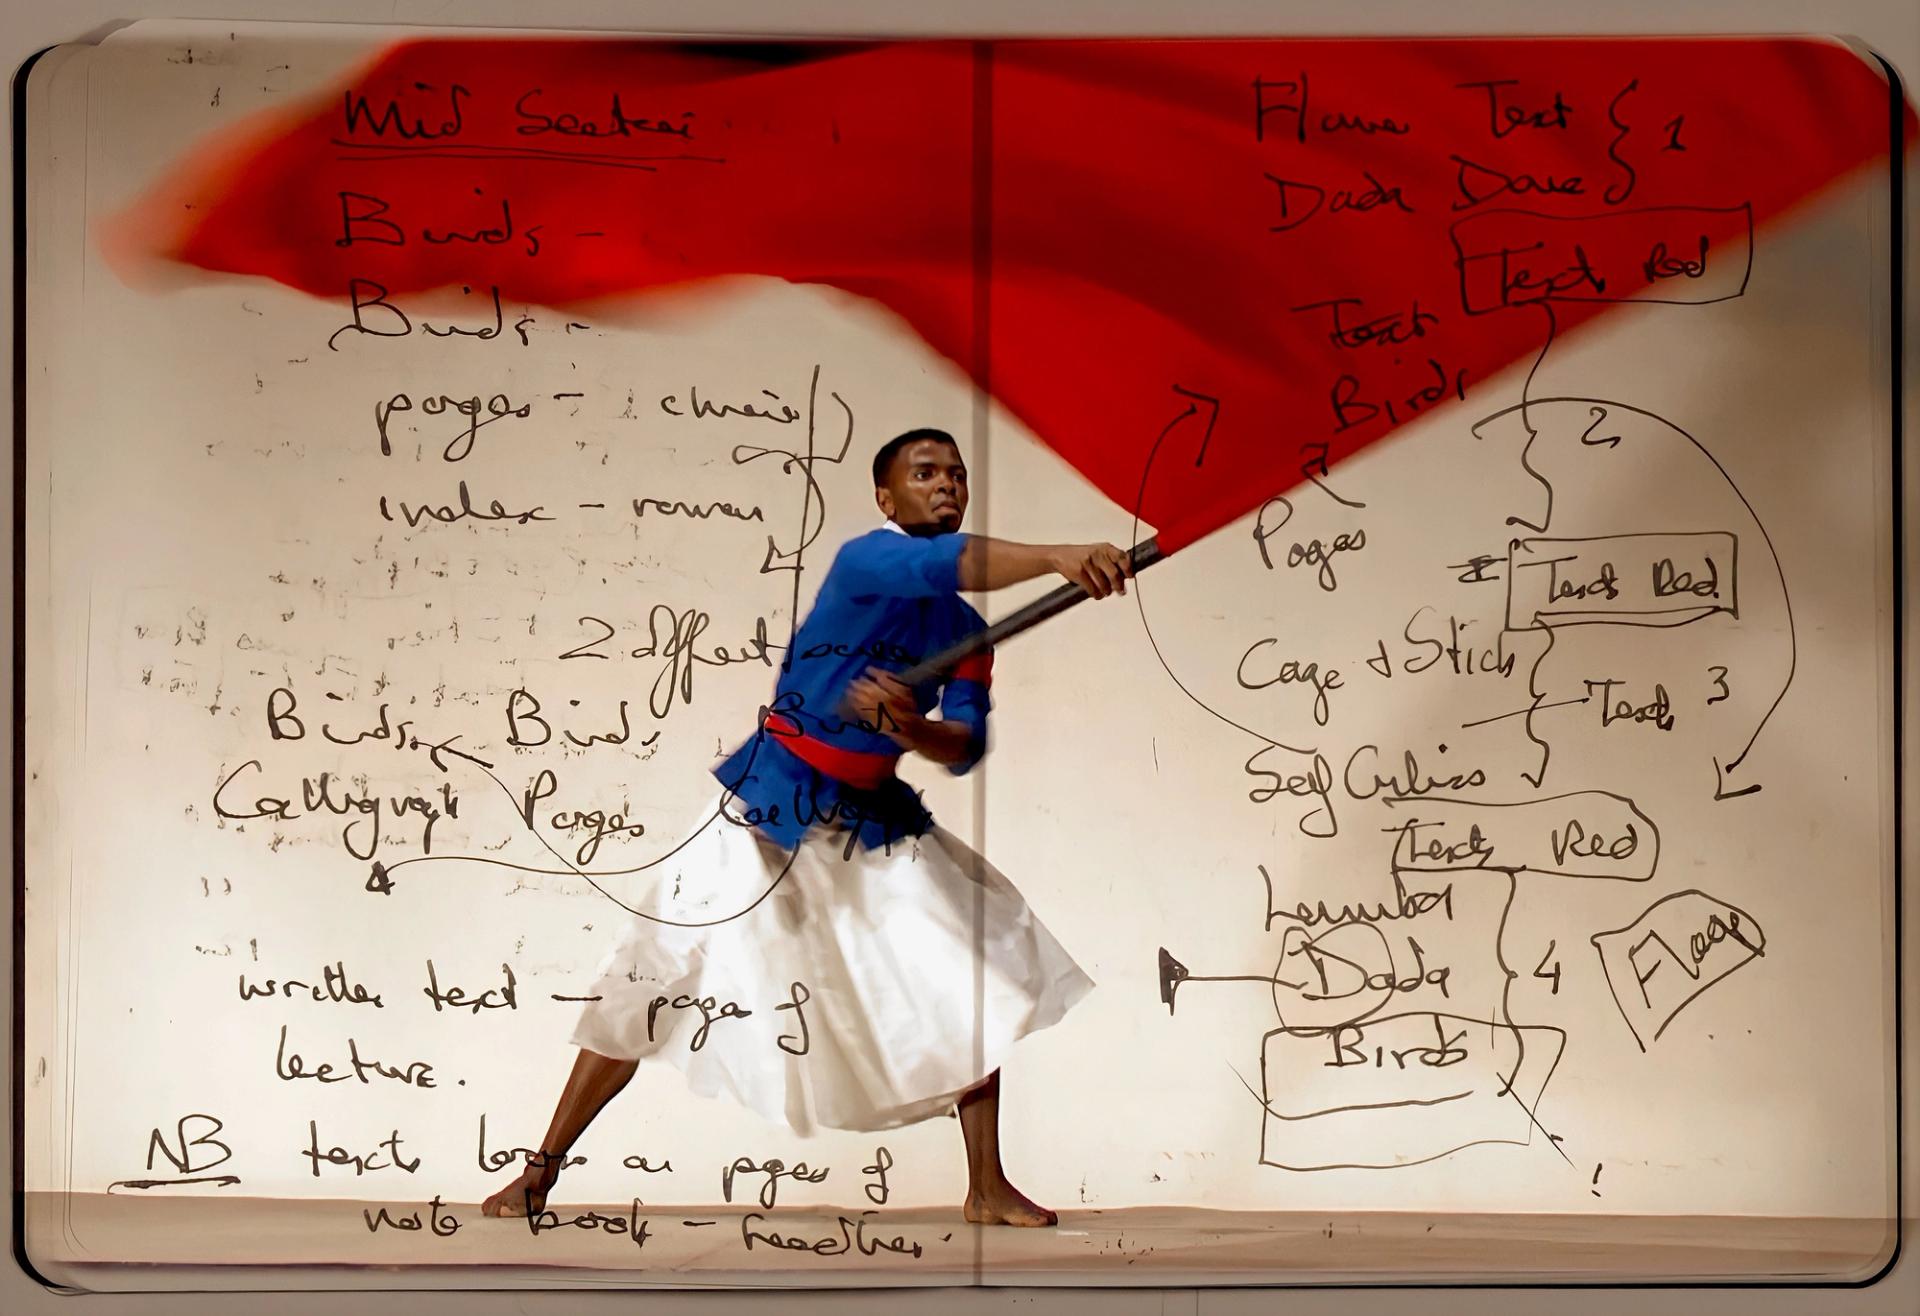 Mid Section
Birds -
Birds -
pages -
index - roman
2 different
Birds Birds Birds
Calligraph Pages Calligraph
written text - page of
lecture.
NB texts on pages of
note book -
Text } 1
Dada
Text Red
Text
Birds
2
Pages
Text Red
Cage & Stick
Text 3
Self
Text Red
Dada 4
Flag
Birds